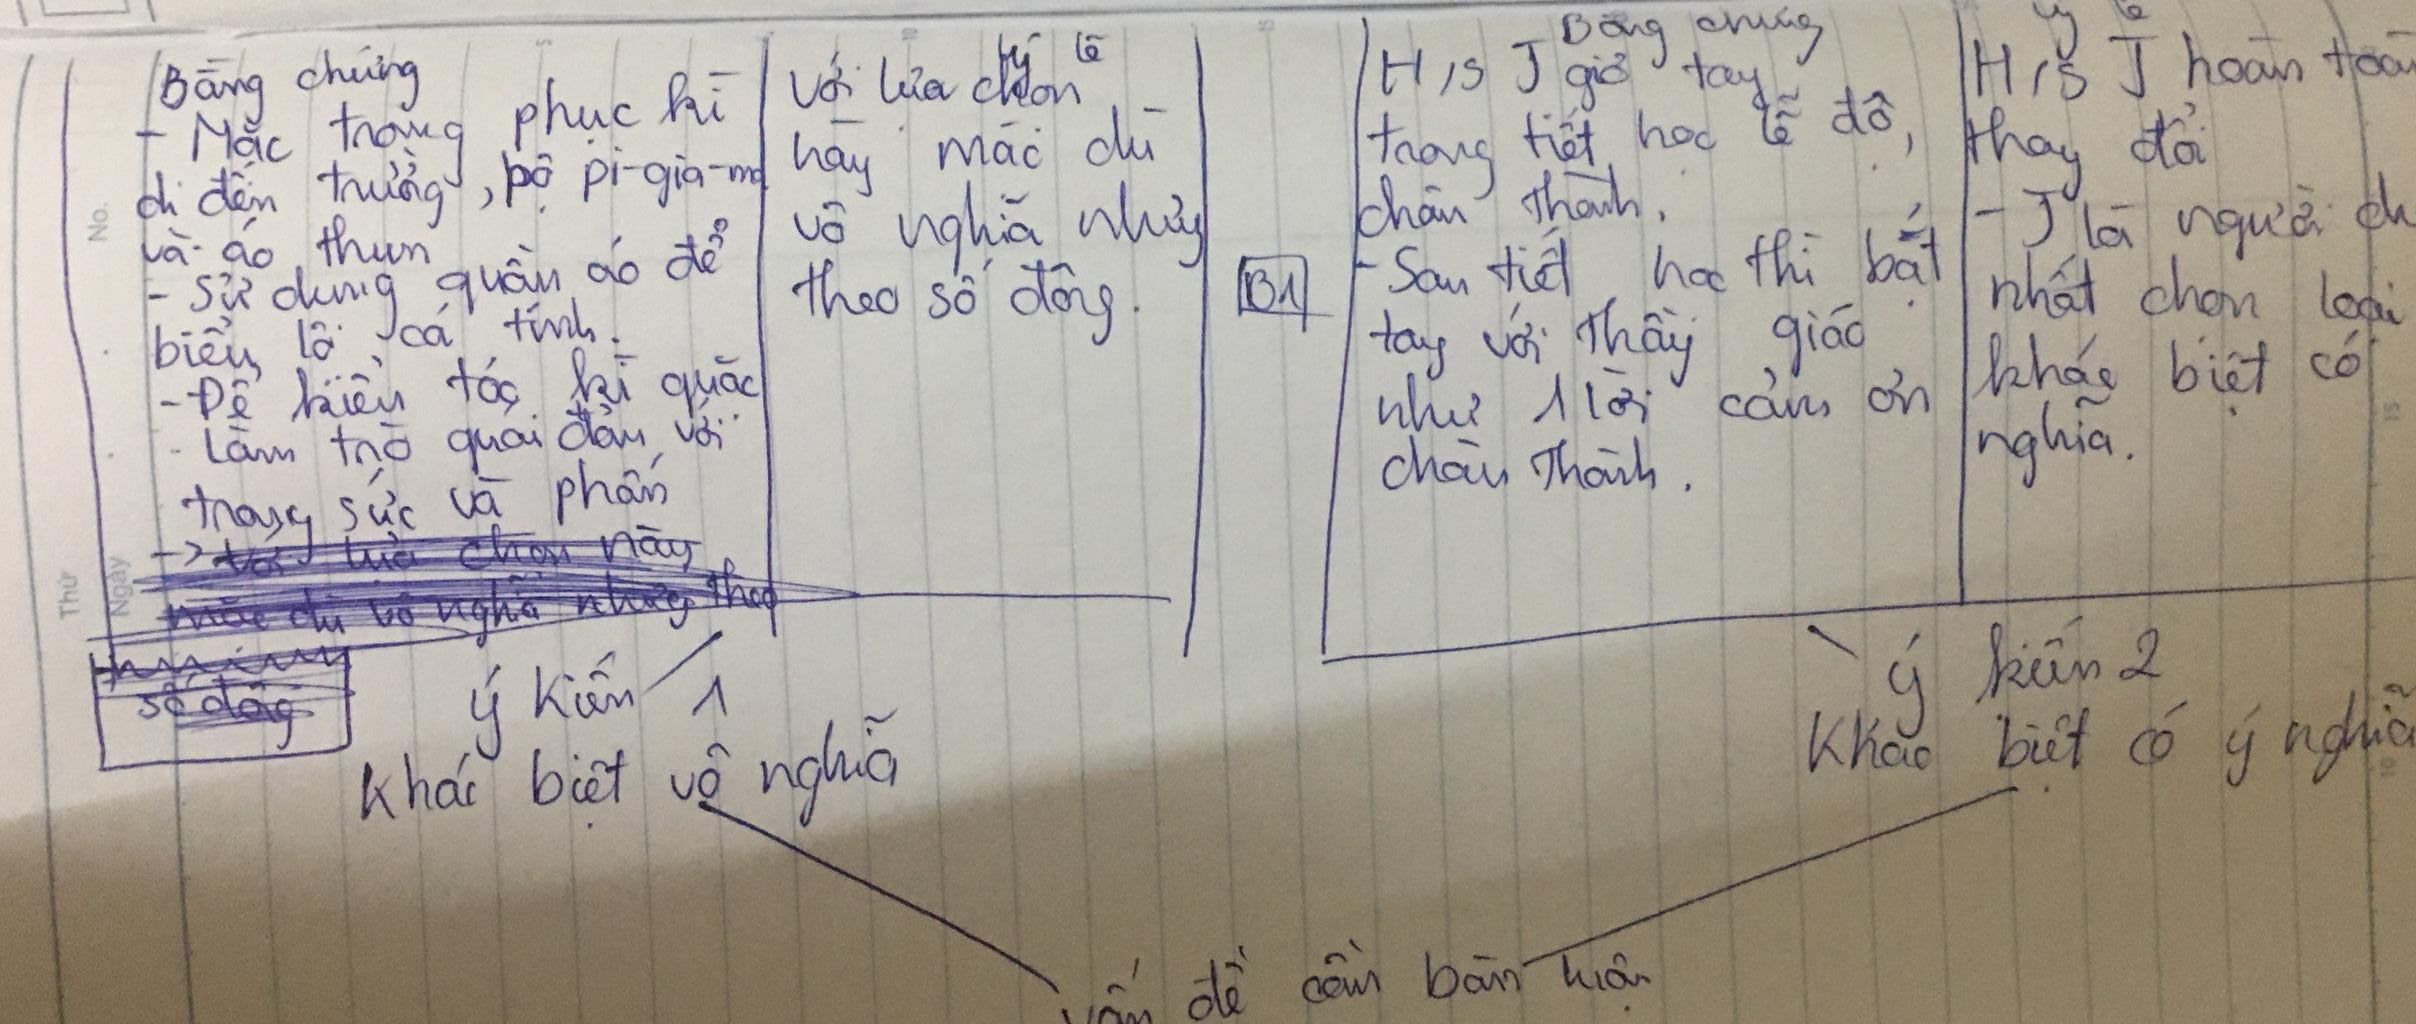 Bằng chứng
- Mặc trang phục kì
đi đến trường, bộ pi-gia-ma
và áo thun
- Sử dụng quần áo để
biểu lộ cá tính.
- Để kiểu tóc kì quặc
- Làm trò quái đản với
trang sức và phấn
-> với lựa chọn này
mặc dù vô nghĩa nhưng theo
số đông
lý lẽ
Với lựa chọn
này mặc dù
vô nghĩa nhưng
theo số đông.
ý kiến 1
Khác biệt vô nghĩa
B1
Bằng chứng
H/s J giơ tay
trong tiết học lễ độ,
chân thành.
- Sau tiết học thì bắt
tay với thầy giáo
như 1 lời cảm ơn
chân thành.
lý lẽ
H/s J hoàn toàn
thay đổi
- J là người
nhất chọn loại
khác biệt có
nghĩa.
ý kiến 2
Khác biệt có ý nghĩa
vấn đề cần bàn luận
No.
Thứ
Ngày